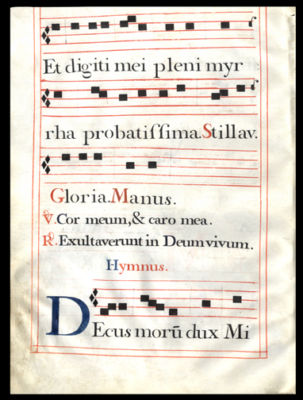 Et digiti mei pleni myr
rha probatiſſima. Stillav.
Gloria. Manus.
℣. Cor meum, & caro mea.
℟. Exultaverunt in Deum vivum.
Hymnus.
DEcus morū dux Mi